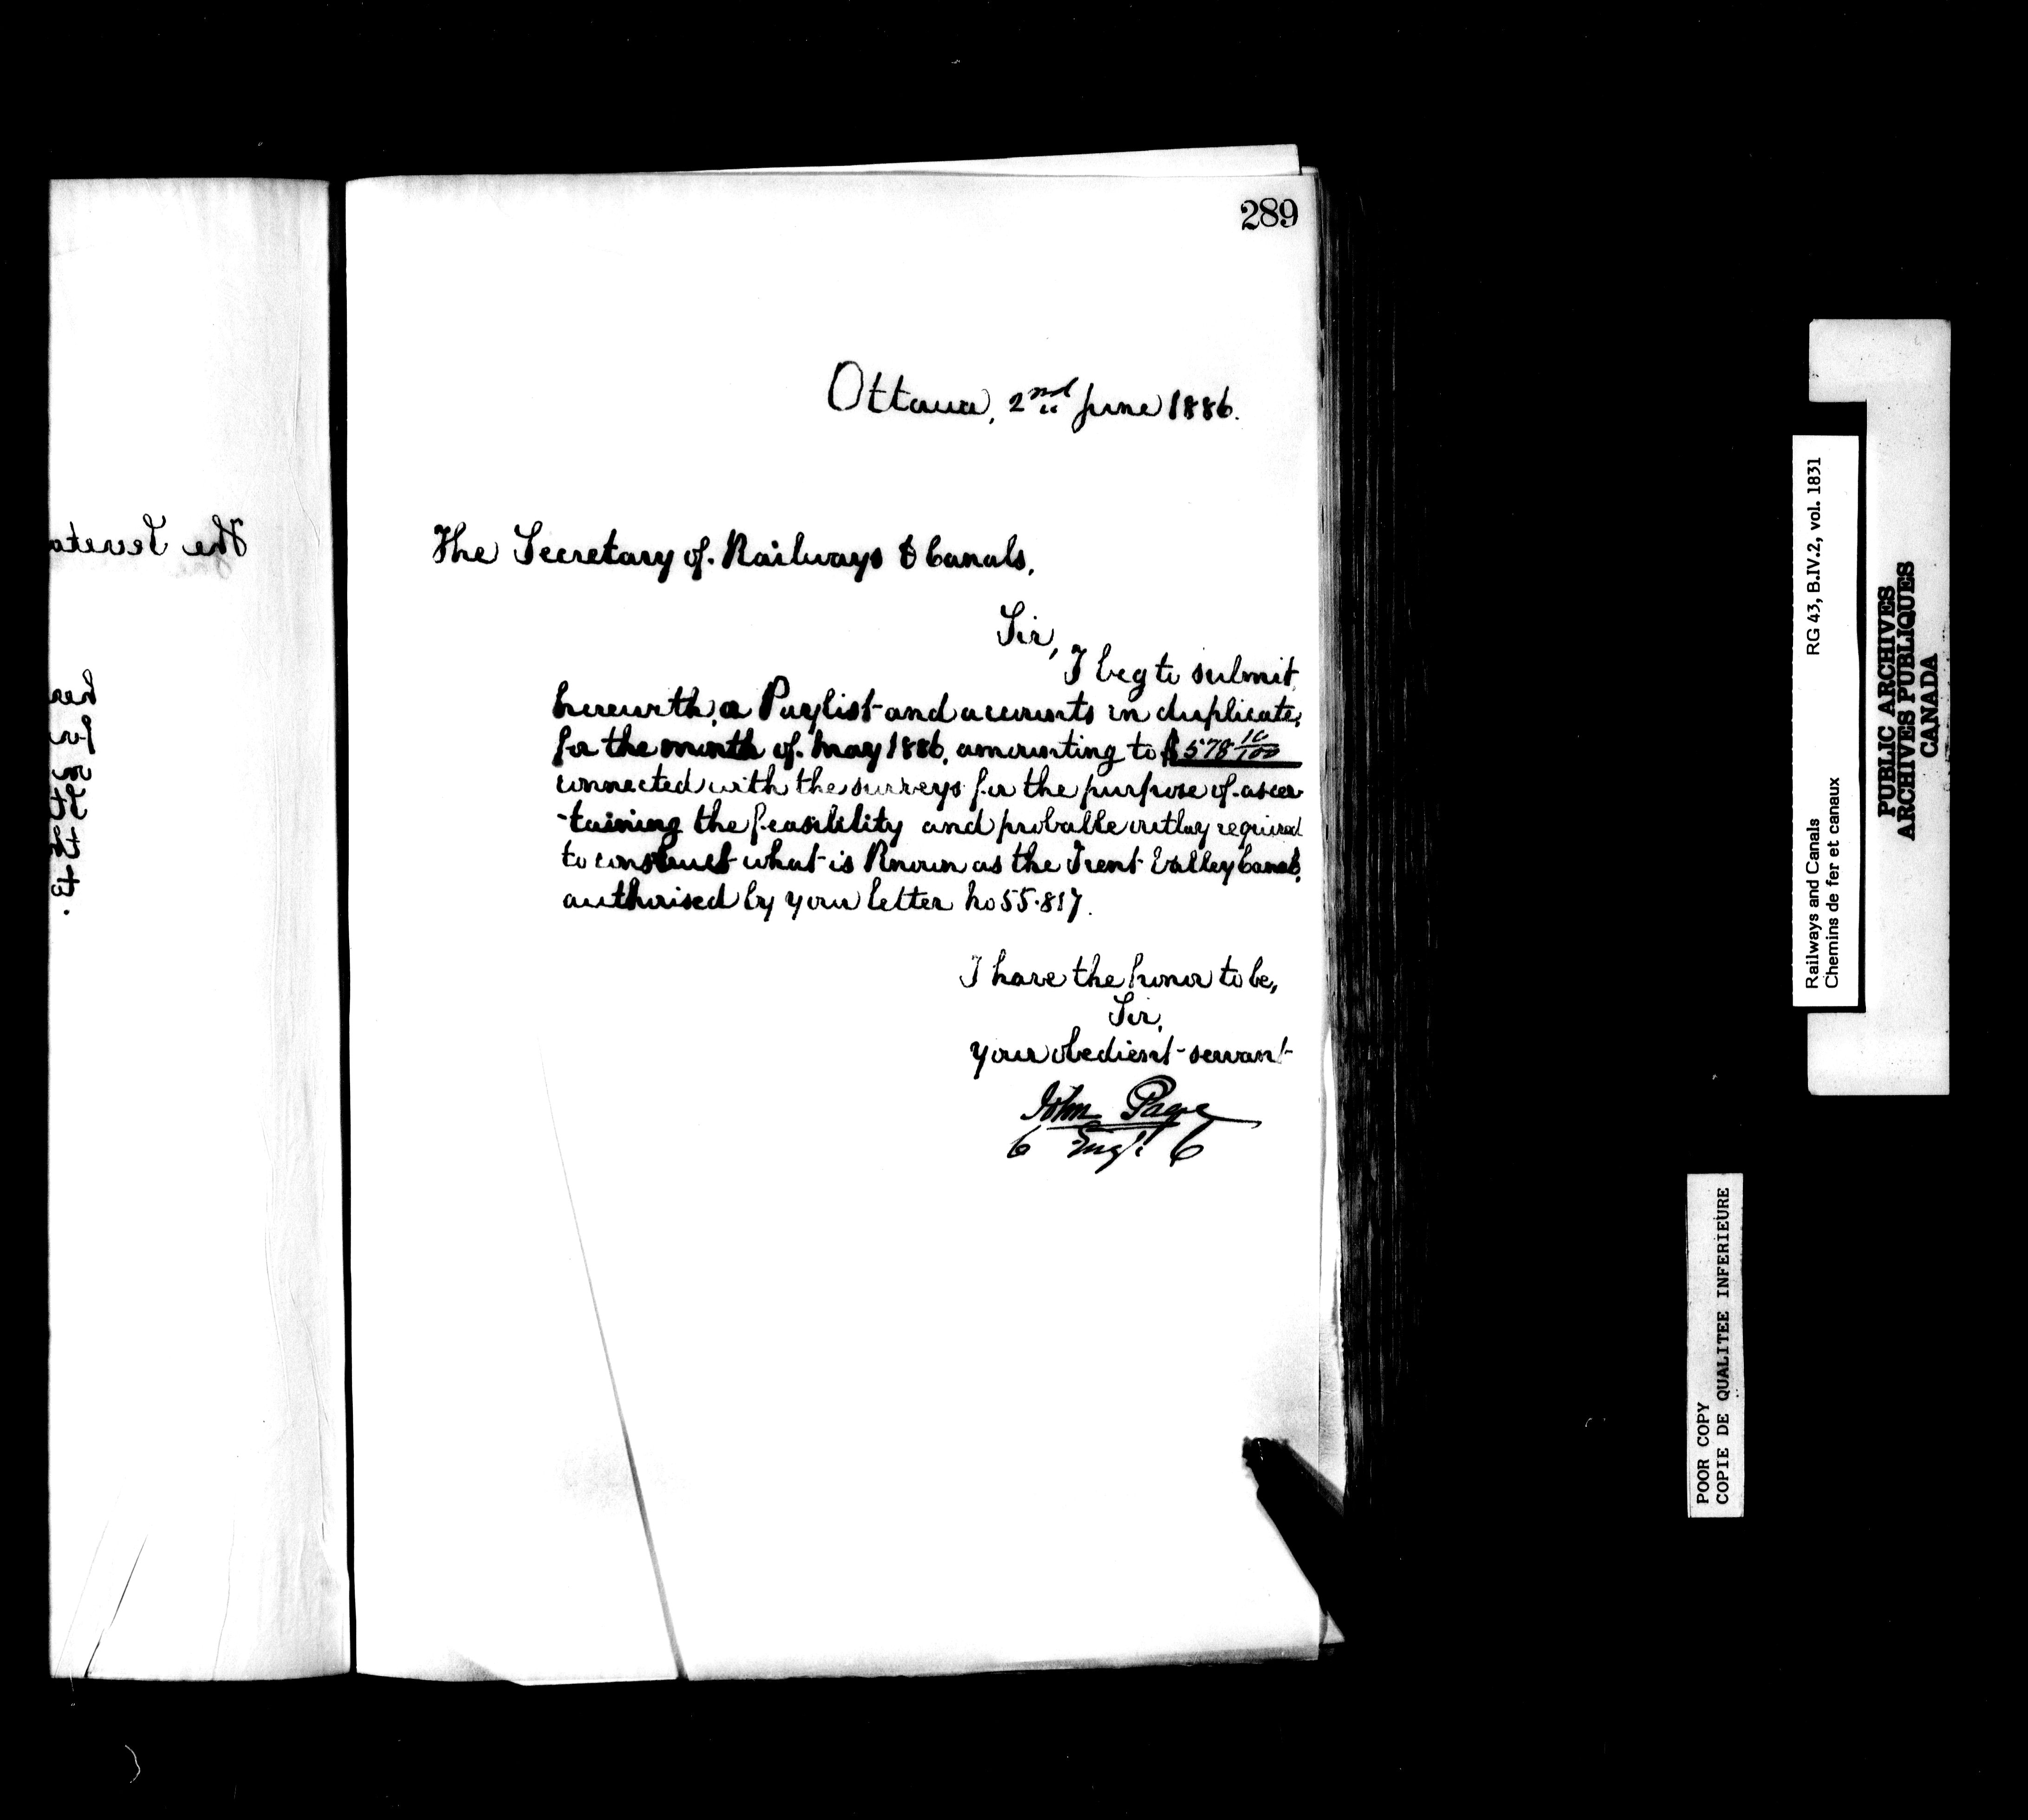 289
Ottawa, 2nd June 1886.
The Secretary of Railways & Canals,
Sir,
I beg to submit
herewith, a Paylist and accounts in duplicate,
for the month of May 1886, amounting to $578 10/100
connected with the surveys for the purpose of ascer
-taining the feasibility and probable outlay required
to construct what is known as the Trent Valley Canal,
authorised by your letter No 55.817.
I have the honor to be,
Sir,
your obedient servant
John Page
C Engr C
The Secreta
her
for
Railways and Canals RG 43, B.IV.2, vol. 1831
Chemins de fer et canaux
PUBLIC ARCHIVES
ARCHIVES PUBLIQUES
CANADA
POOR COPY
COPIE DE QUALITEE INFERIEURE